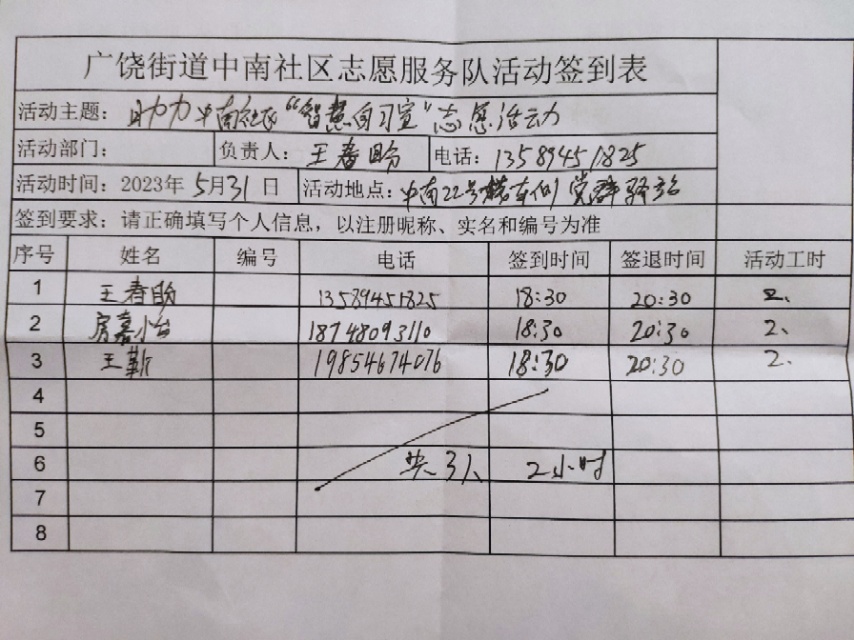 广饶街道中南社区志愿服务队活动签到表
活动主题: 助力中南社区“智慧自习室”志愿活动
活动部门: 负责人: 王春盼 电话: 13589451825
活动时间: 2023年 5月31日 活动地点: 中南22号楼东侧 党群驿站
签到要求: 请正确填写个人信息，以注册昵称、实名和编号为准
序号 姓名 编号 电话 签到时间 签退时间 活动工时
1 王春盼 13589451825 18:30 20:30 2、
2 房嘉 18748093110 18:30 20:30 2、
3 王 19854674076 18:30 20:30 2、
4
5
6 共3人 2小时
7
8